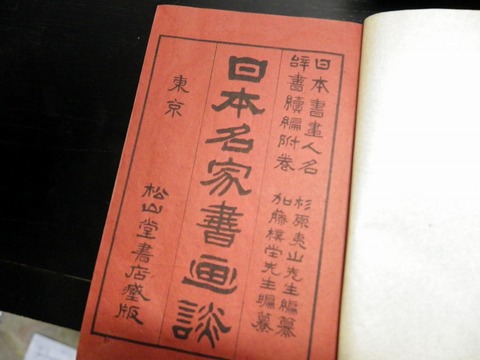 日本書畫人名
辭書續編附巻
杉原夷山先生編纂
加藤樸堂先生編纂
日本名家書画談
東京
松山堂書店蔵版